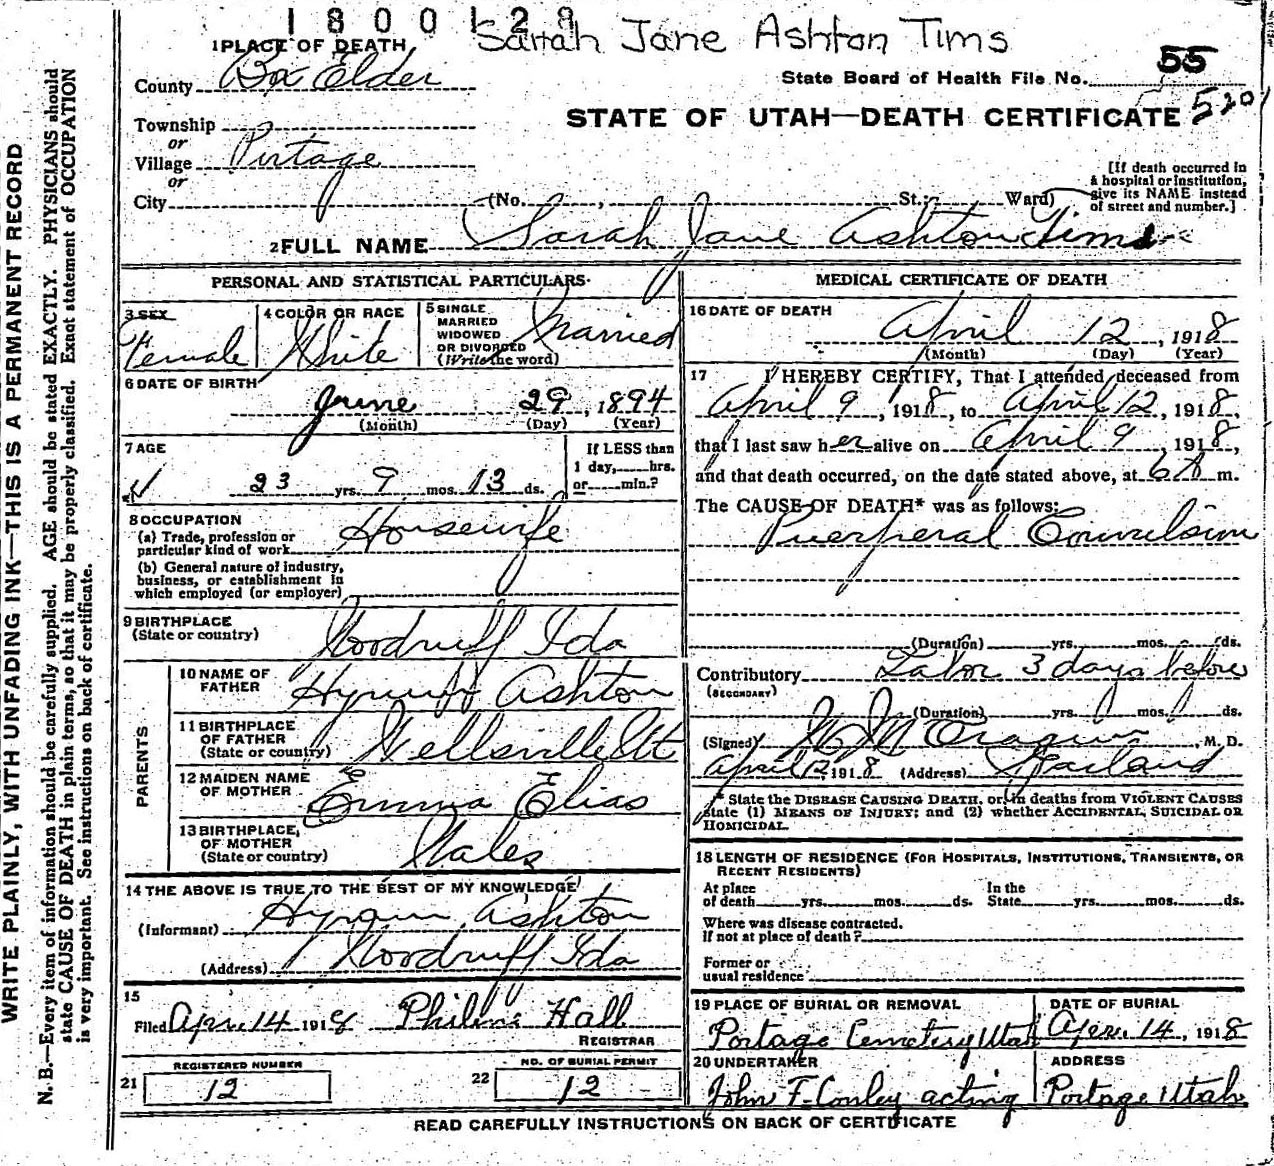 1800129
Sarah Jane Ashton Tims
1 PLACE OF DEATH
County Box Elder
55
State Board of Health File No.
5201
STATE OF UTAH—DEATH CERTIFICATE
Township
or
Village Portage
or
City (No. , St.; Ward)
[If death occurred in a hospital or institution, give its NAME instead of street and number.]
2 FULL NAME Sarah Jane Ashton Tims
PERSONAL AND STATISTICAL PARTICULARS.
3 SEX Female
4 COLOR OR RACE White
5 SINGLE MARRIED WIDOWED OR DIVORCED (Write the word) Married
6 DATE OF BIRTH
June 29, 1894
(Month) (Day) (Year)
7 AGE
23 yrs. 9 mos. 13 ds.
If LESS than 1 day, hrs. or min.?
8 OCCUPATION
(a) Trade, profession or particular kind of work Housewife
(b) General nature of industry, business, or establishment in which employed (or employer)
9 BIRTHPLACE
(State or country) Woodruff Ida
PARENTS
10 NAME OF FATHER Hyrum Ashton
11 BIRTHPLACE OF FATHER (State or country) Wellsville Ut
12 MAIDEN NAME OF MOTHER Emma Elias
13 BIRTHPLACE, OF MOTHER (State or country) Wales
14 THE ABOVE IS TRUE TO THE BEST OF MY KNOWLEDGE
(Informant) Hyrum Ashton
(Address) Woodruff Ida
15
Filed Apr. 14 1918 Hall
REGISTRAR
REGISTERED NUMBER
21 12
NO. OF BURIAL PERMIT
22 12
MEDICAL CERTIFICATE OF DEATH
16 DATE OF DEATH
April 12, 1918
(Month) (Day) (Year)
17 I HEREBY CERTIFY, That I attended deceased from
April 9, 1918, to April 12, 1918,
that I last saw her alive on April 9, 1918,
and that death occurred, on the date stated above, at 6 m.
The CAUSE OF DEATH* was as follows:
Puerperal Convulsion
(Duration) yrs. mos. ds.
Contributory Labor 3 days before
(SECONDARY)
(Duration) yrs. mos. ds.
(Signed) , M. D.
April 12 1918 (Address) Garland
* State the DISEASE CAUSING DEATH, or, in deaths from VIOLENT CAUSES
state (1) MEANS OF INJURY; and (2) whether ACCIDENTAL, SUICIDAL OR
HOMICIDAL.
18 LENGTH OF RESIDENCE (FOR HOSPITALS, INSTITUTIONS, TRANSIENTS, OR RECENT RESIDENTS)
At place of death yrs. mos. ds. In the State yrs. mos. ds.
Where was disease contracted.
If not at place of death?
Former or
usual residence
19 PLACE OF BURIAL OR REMOVAL
Portage Cemetery Utah
DATE OF BURIAL
Apr. 14, 1918
20 UNDERTAKER
John F. Conley acting
ADDRESS
Portage Utah
READ CAREFULLY INSTRUCTIONS ON BACK OF CERTIFICATE
WRITE PLAINLY, WITH UNFADING INK—THIS IS A PERMANENT RECORD
N. B.—Every item of information should be carefully supplied. AGE should be stated EXACTLY. PHYSICIANS should
state CAUSE OF DEATH in plain terms, so that it may be properly classified. Exact statement of OCCUPATION
is very important. See instructions on back of certificate.